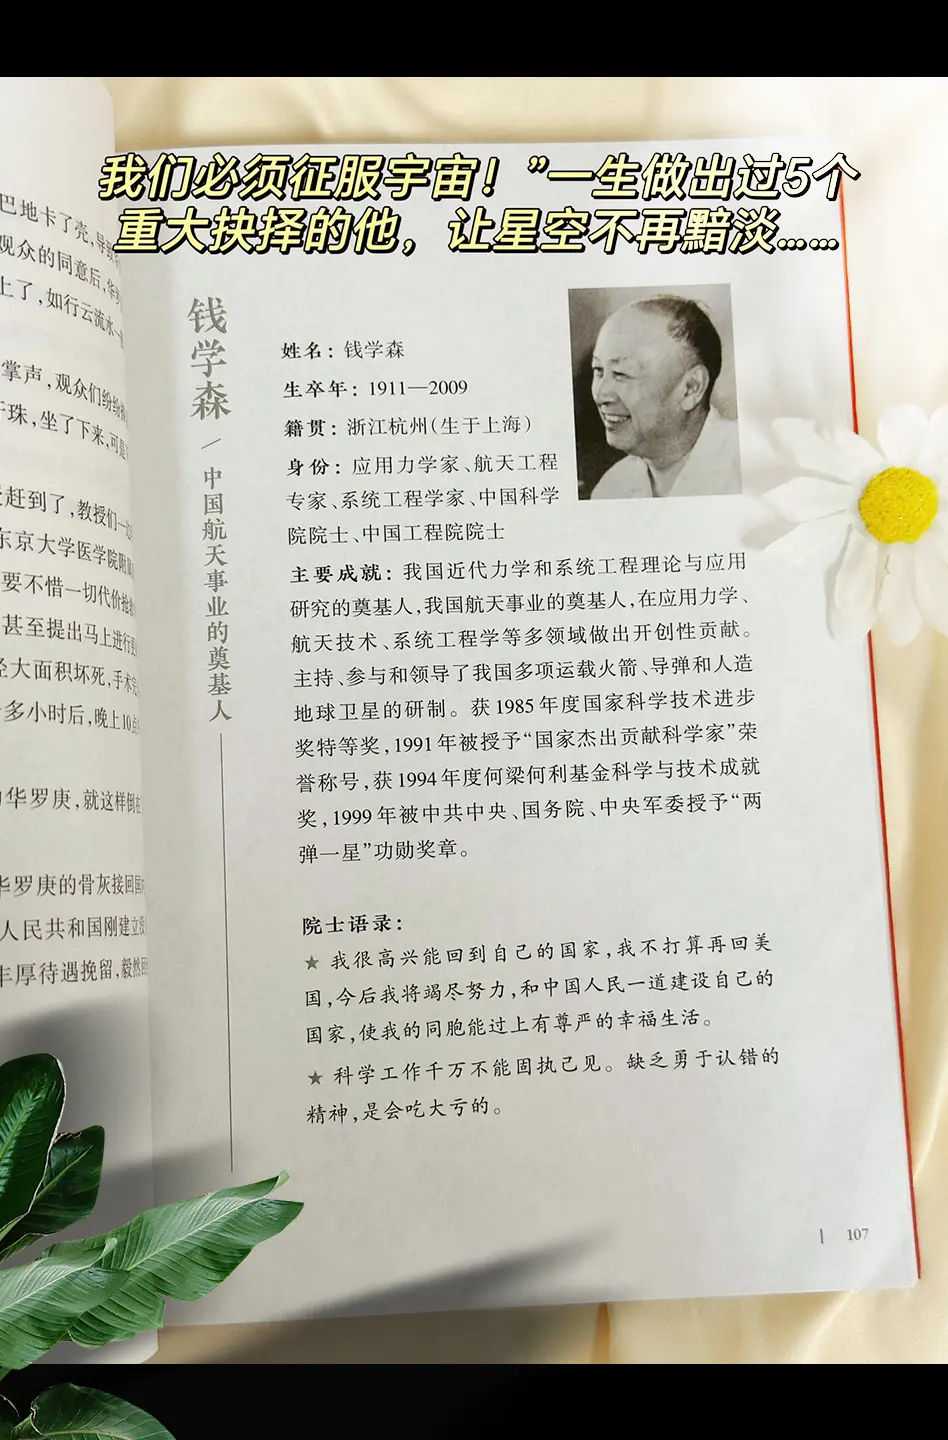 我们必须征服宇宙！”一生做出过5个
重大抉择的他，让星空不再黯淡……
巴地卡了壳,导致
观众的同意后,华罗
上了,如行云流水一
掌声,观众们纷纷
珠,坐了下来,可是
赶到了,教授们一
东京大学医学院附属
要不惜一切代价抢
甚至提出马上进行
大面积坏死,手术
多小时后,晚上10点
华罗庚,就这样倒在
华罗庚的骨灰接回国
人民共和国刚建立
丰厚待遇挽留,毅然
钱学森／中国航天事业的奠基人
姓名：钱学森
生卒年：1911—2009
籍贯：浙江杭州(生于上海)
身份：应用力学家、航天工程
专家、系统工程学家、中国科学
院院士、中国工程院院士
主要成就：我国近代力学和系统工程理论与应用
研究的奠基人,我国航天事业的奠基人,在应用力学、
航天技术、系统工程学等多领域做出开创性贡献。
主持、参与和领导了我国多项运载火箭、导弹和人造
地球卫星的研制。获1985年度国家科学技术进步
奖特等奖,1991年被授予“国家杰出贡献科学家”荣
誉称号,获1994年度何梁何利基金科学与技术成就
奖,1999年被中共中央、国务院、中央军委授予“两
弹一星”功勋奖章。
院士语录：
★ 我很高兴能回到自己的国家,我不打算再回美
国,今后我将竭尽努力,和中国人民一道建设自己的
国家,使我的同胞能过上有尊严的幸福生活。
★ 科学工作千万不能固执己见。缺乏勇于认错的
精神,是会吃大亏的。
107